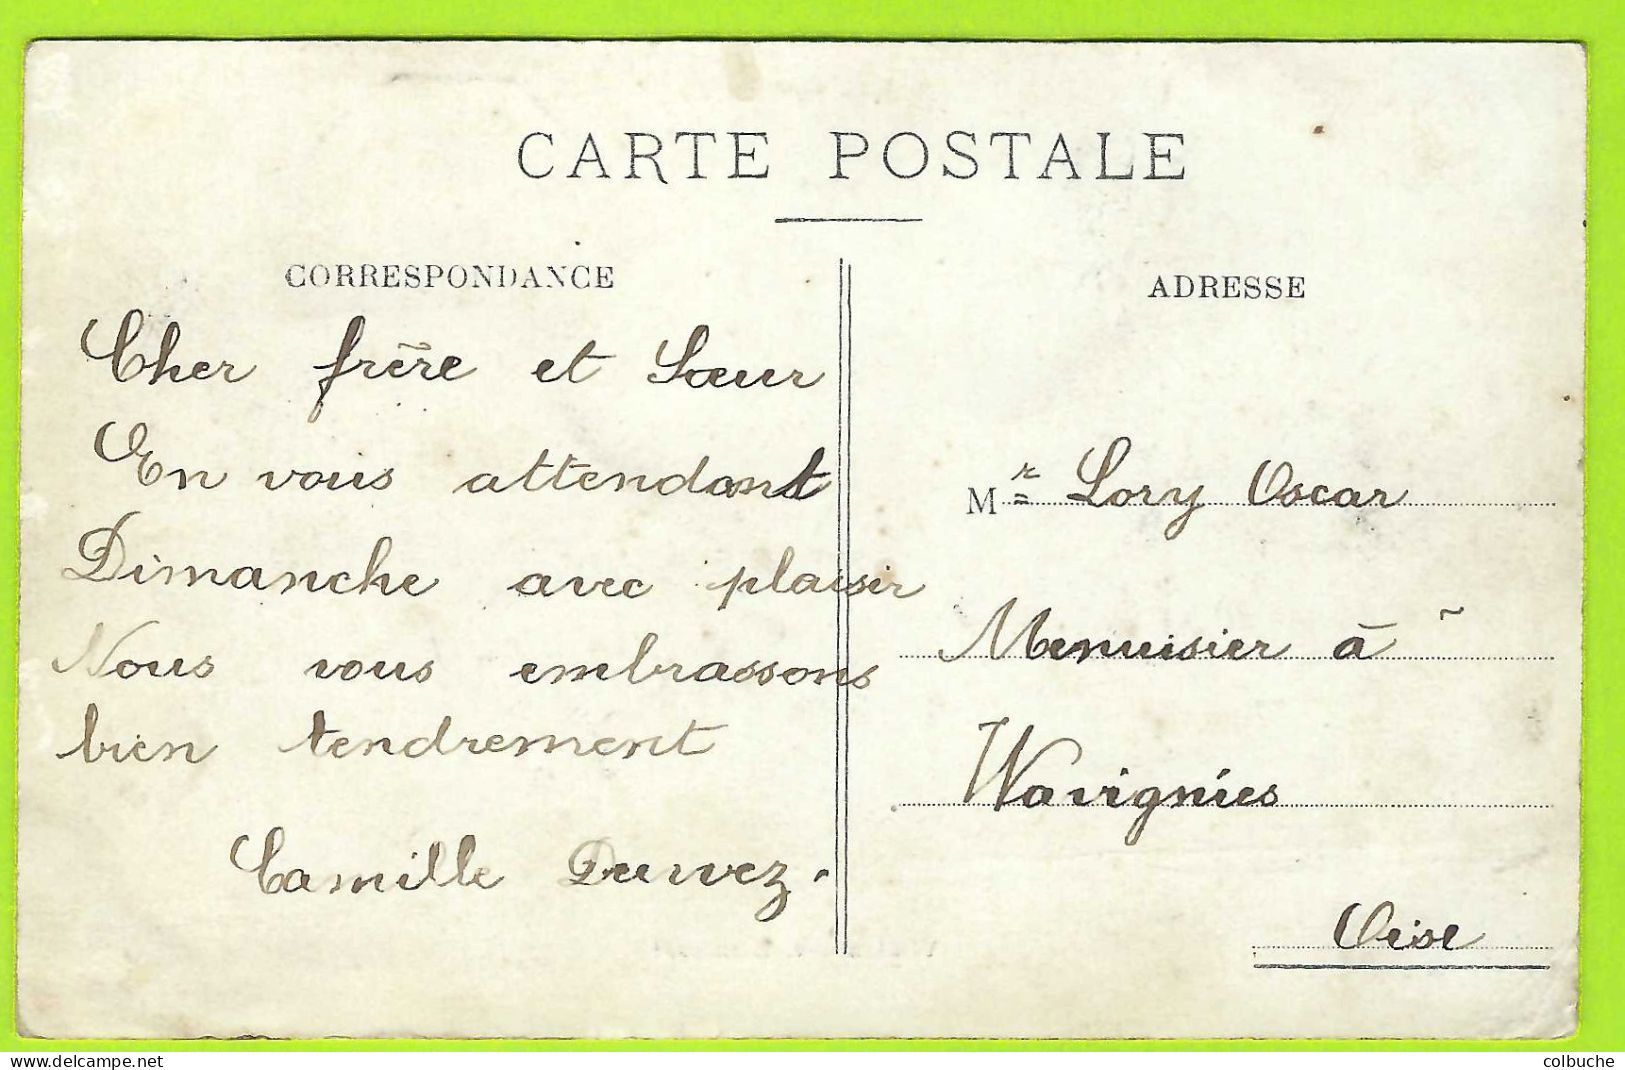 CARTE POSTALE
CORRESPONDANCE
Cher frère et Sœur
En vous attendant
Dimanche avec plaisir
Nous vous embrassons
bien tendrement
Camille Duvez.
ADRESSE
Mr Lory Oscar
Menuisier à
Wavignies
Oise
www.delcampe.net
colbuche